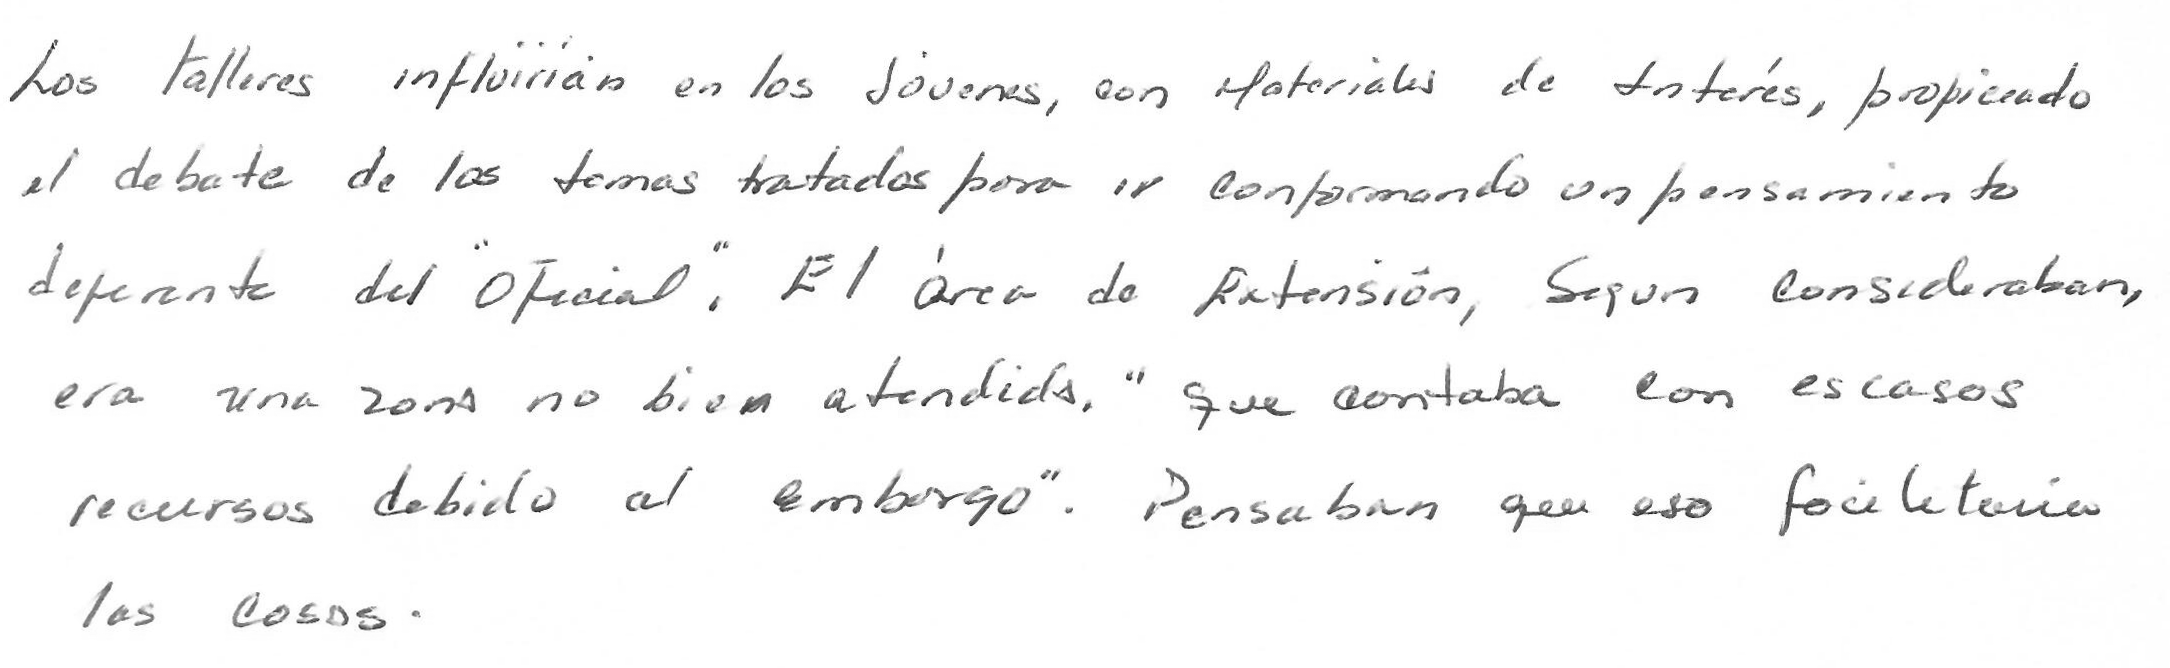 Los talleres influirián en los Jóvenes, con Materiales de Interés, propiciado
el debate de los temas tratados para ir conformando un pensamiento
deferente del "Oficial". El área de Extensión, Segun consideraban,
era una zona no bien atendida, "que contaba con escasos
recursos debido al embargo". Pensaban que eso facilitaria
las cosas.